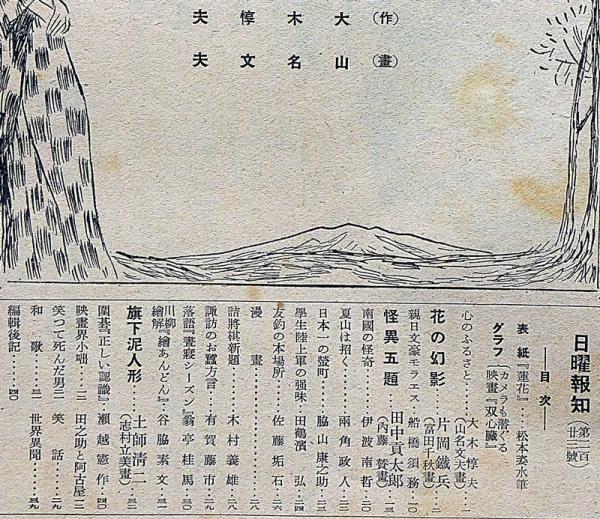 (作) 大木惇夫
(畫) 山名文夫
日曜報知 (第二百廿三號)
――目次――
表紙『蓮花』……松本姿水筆
グラフ『カメラも潛ぐる』
『映畫『双心臓』
心のふるさと……大木惇夫 (山名文夫畫)
花の幻影……片岡鐵兵 (富田千秋畫)
親日文豪モラエス 船橋須務…一〇
怪異五題……田中貢太郎 (內藤賛畫)
南國の怪奇……伊波南哲…二〇
夏山は招く……兩角政人…二三
日本一の螢町……脇山康之助…二三
學生陸上軍の强味…田鶴濱弘…二四
友釣の本場所……佐藤垢石…二六
漫畫……二八
詰將棋新題……木村義雄…二八
諏訪のお蠶方言……有賀藤市…二九
落語『晝寢シーズン』翁亭桂馬…三〇
川柳繪解『繪あんどん』…谷脇素文…三一
旗下泥人形……土師淸二 (志村立美畫)…三二
圍碁『正しい認識』…瀨越憲作…四〇
映畫界小咄…三 田之助と阿古屋…三
笑つて死んだ男…三 笑話……二九
和歌……三 世界異聞……三九
編輯後記……四〇